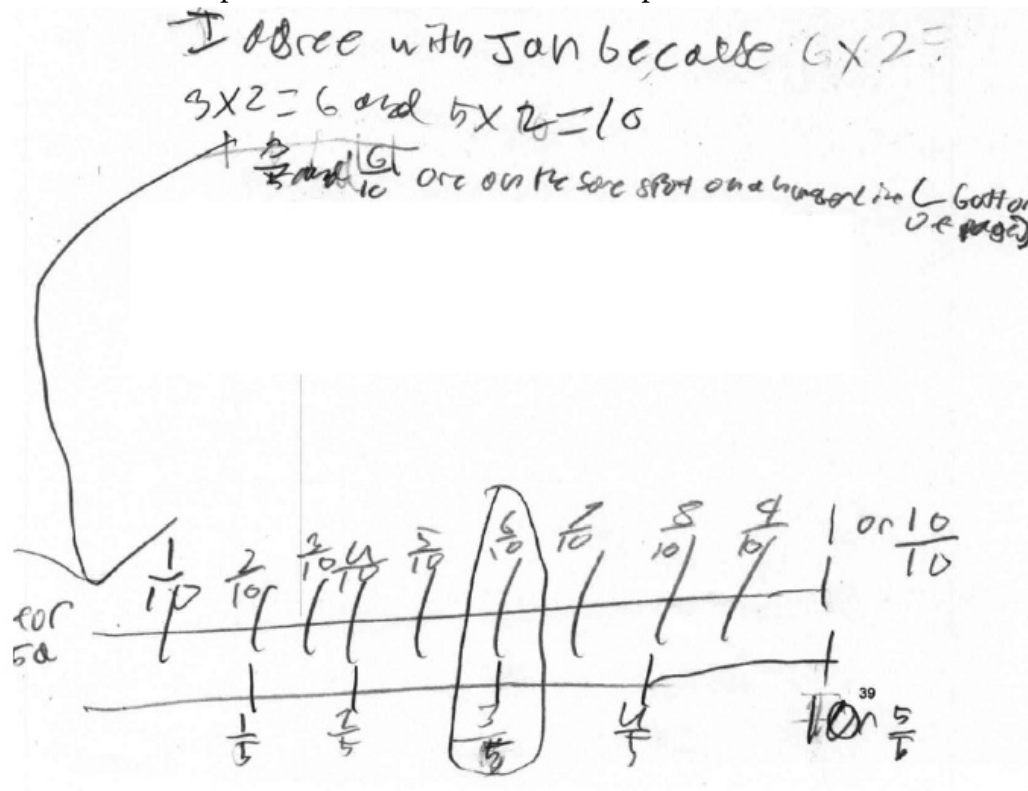 I agree with Jan because 6x2=
3x2=6 and 5x2=10
3/5 and 6/10 are on the same spot on a number line (bottom
of page)
1/10 2/10 3/10 4/10 5/10 6/10 7/10 8/10 9/10 1 or 10/10
for
5a
1/5 2/5 3/5 4/5 1 or 5/5
39